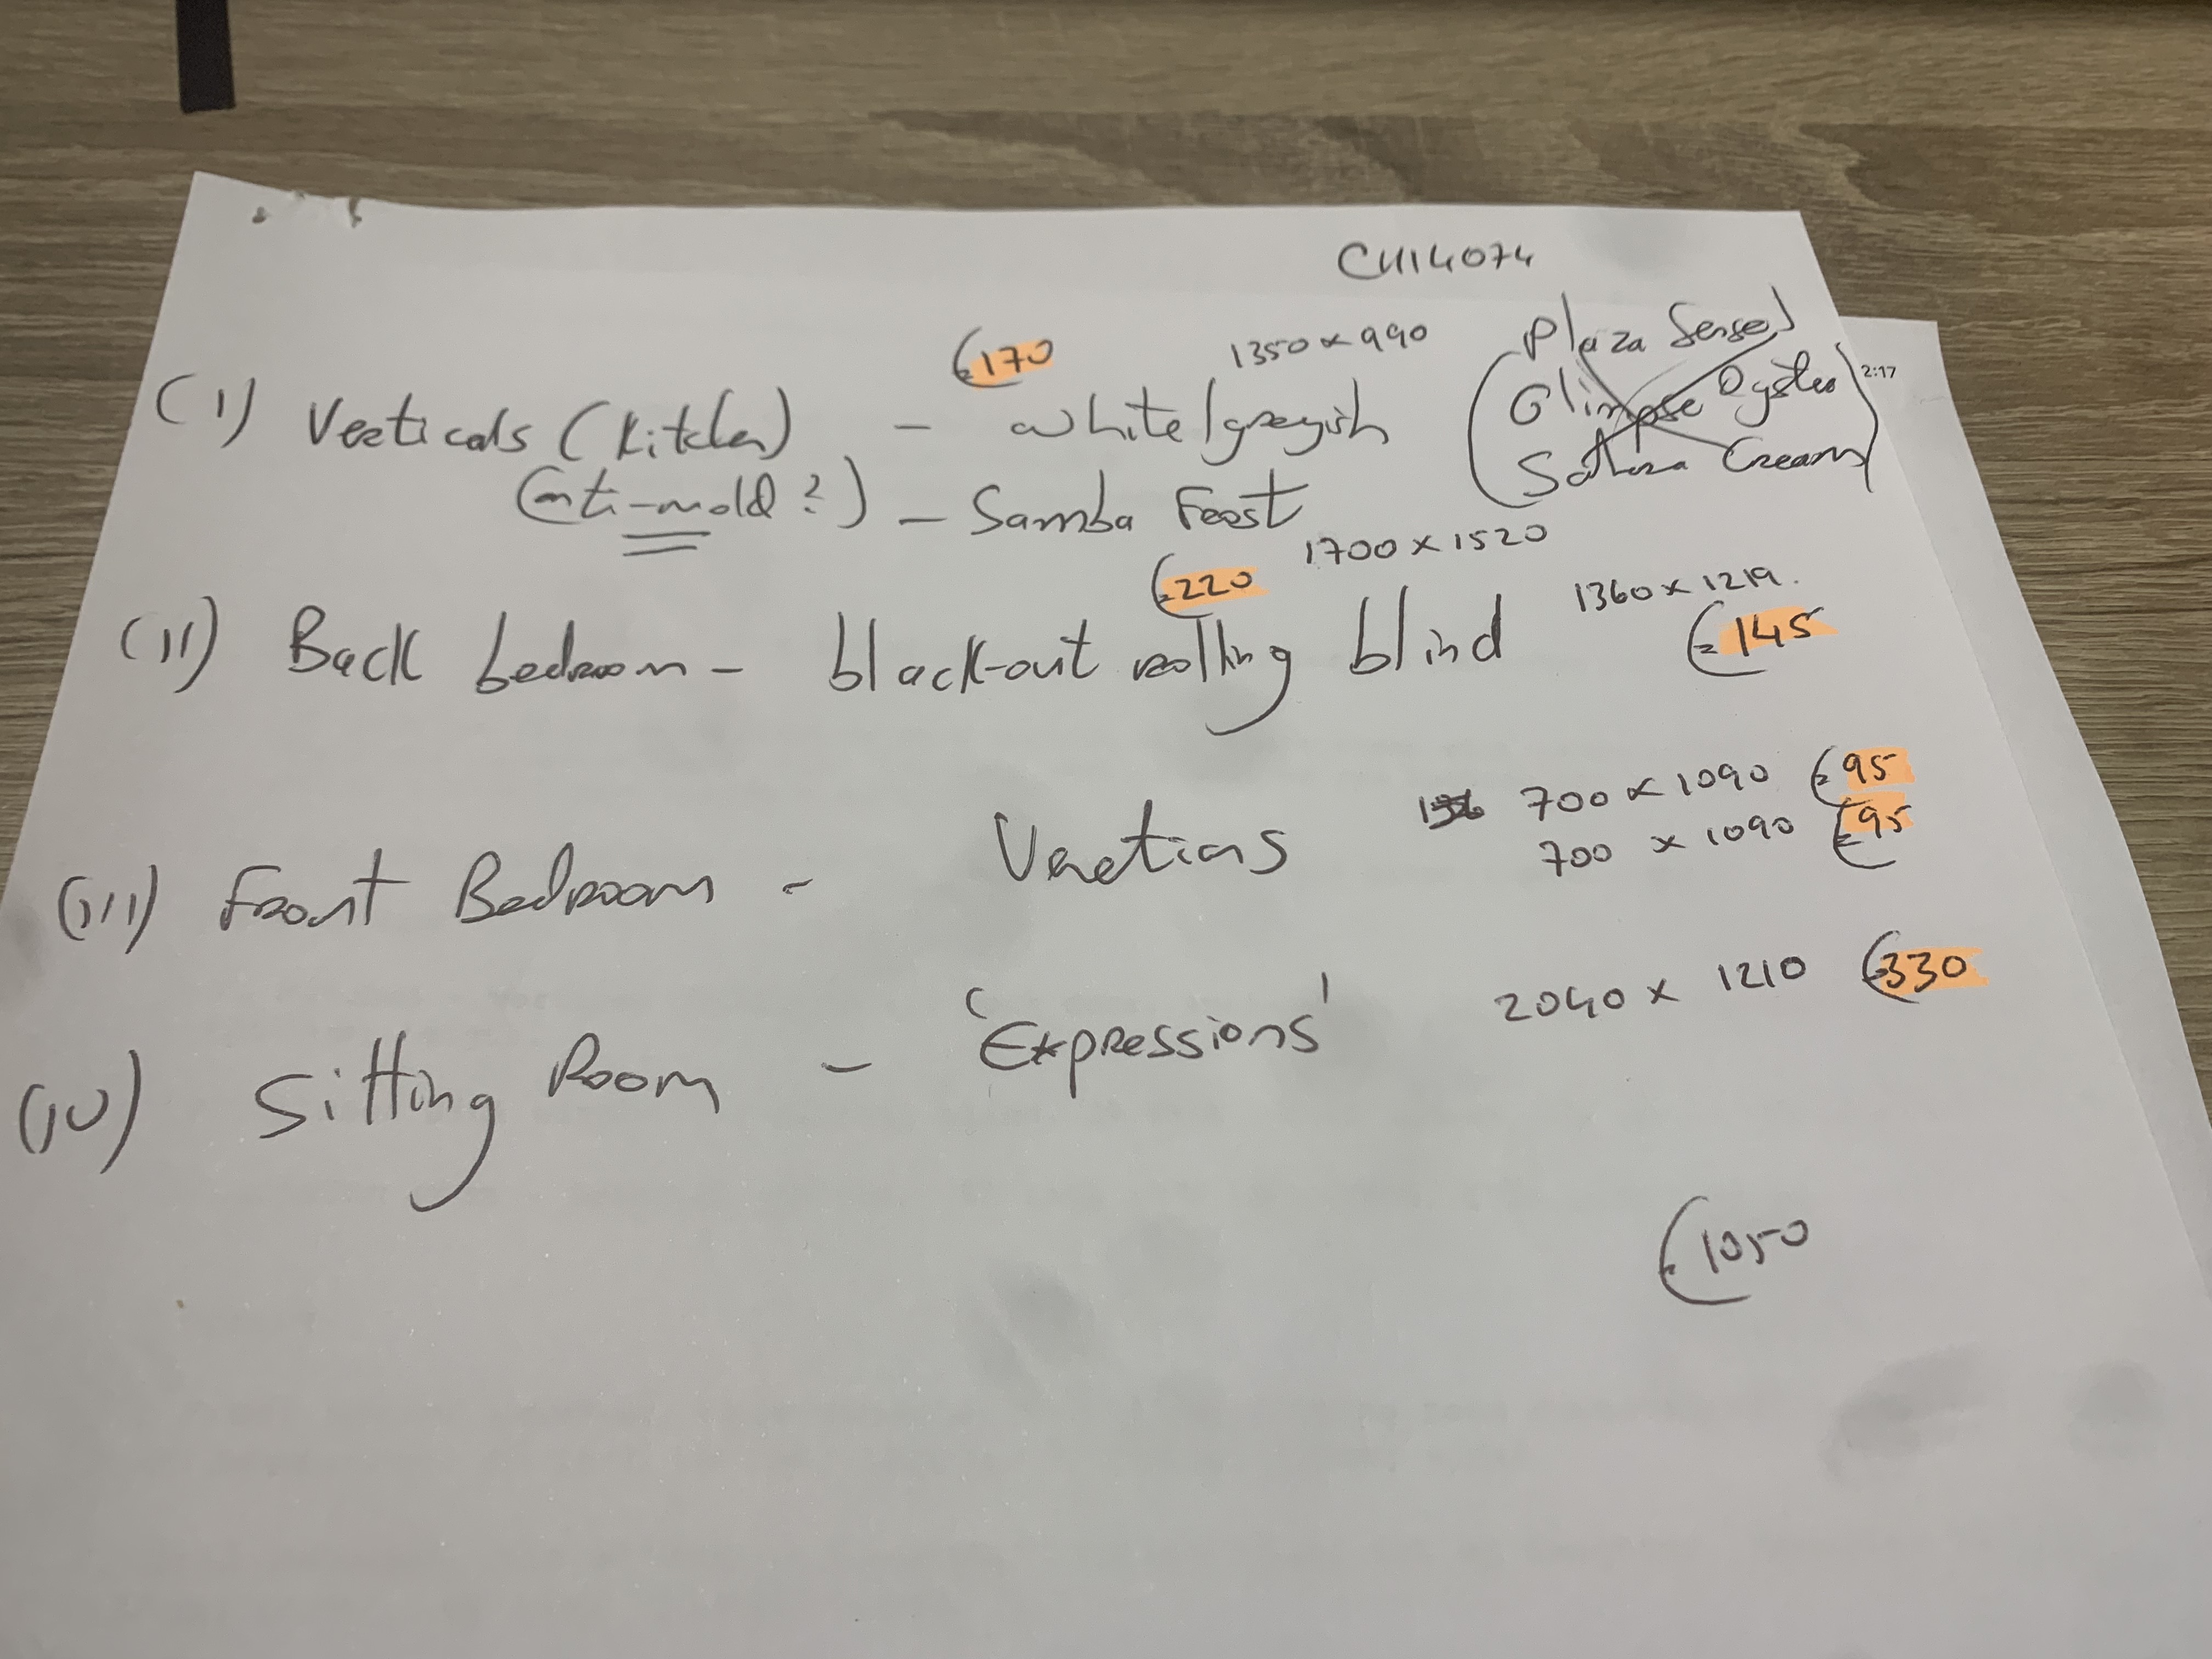 CH14074
€170 1350 x 990 Plaza Sense
(I) Verticals (Kitchen) - white/greyish (Glimpse Oyster 2:17
(anti-mold?) - Samba Frost Cream)
€220 1700 x 1520
1360 x 1219.
(II) Back bedroom - black-out rolling blind €145
700 x 1090 €95
(III) Front Bedroom - Venetians 700 x 1090 €95
(IV) Sitting Room - 'Expressions' 2040 x 1210 €330
€1050